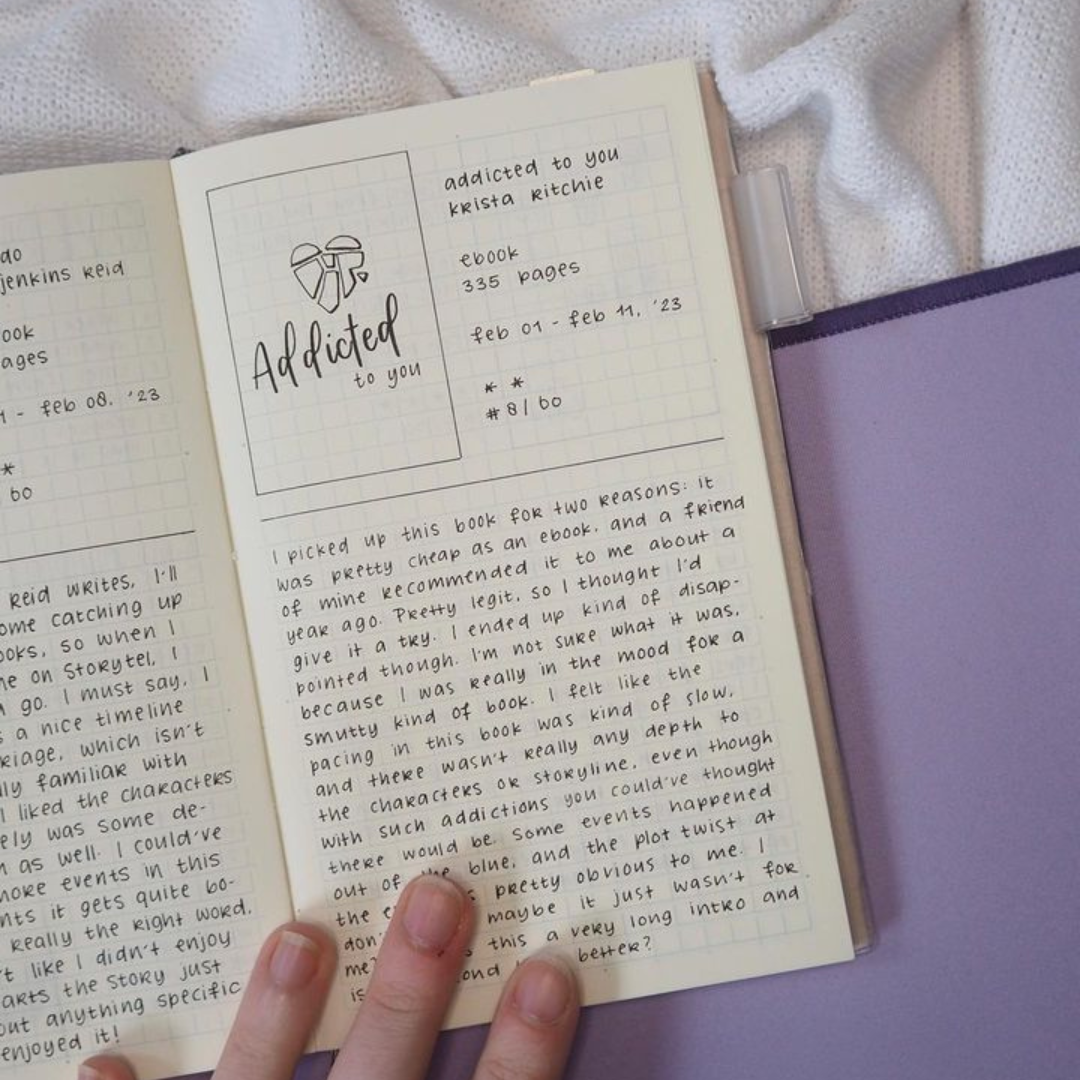 do
jenkins reid
ook
ages
1 - feb 08, '23
*
60
reid writes, I'll
ome catching up
ooks, so when I
me on Storytel, I
a go. I must say, I
s a nice timeline
riage, which isn't
lly familiar with
I liked the characters
ely was some de-
n as well. I could've
more events in this
nts it gets quite bo-
really the right word,
't like I didn't enjoy
arts the story just
out anything specific
enjoyed it!
Addicted
to you
addicted to you
krista ritchie
ebook
335 pages
feb 01 - feb 11, '23
* *
#8/60
I picked up this book for two reasons: it
was pretty cheap as an ebook, and a friend
of mine recommended it to me about a
year ago. Pretty legit, so I thought I'd
give it a try. I ended up kind of disap-
pointed though. I'm not sure what it was,
because I was really in the mood for a
smutty kind of book. I felt like the
pacing in this book was kind of slow,
and there wasn't really any depth to
the characters or storyline, even though
with such addictions you could've thought
there would be. Some events happened
out of the blue, and the plot twist at
the e s pretty obvious to me. I
don' maybe it just wasn't for
me? s this a very long intro and
is ond better?